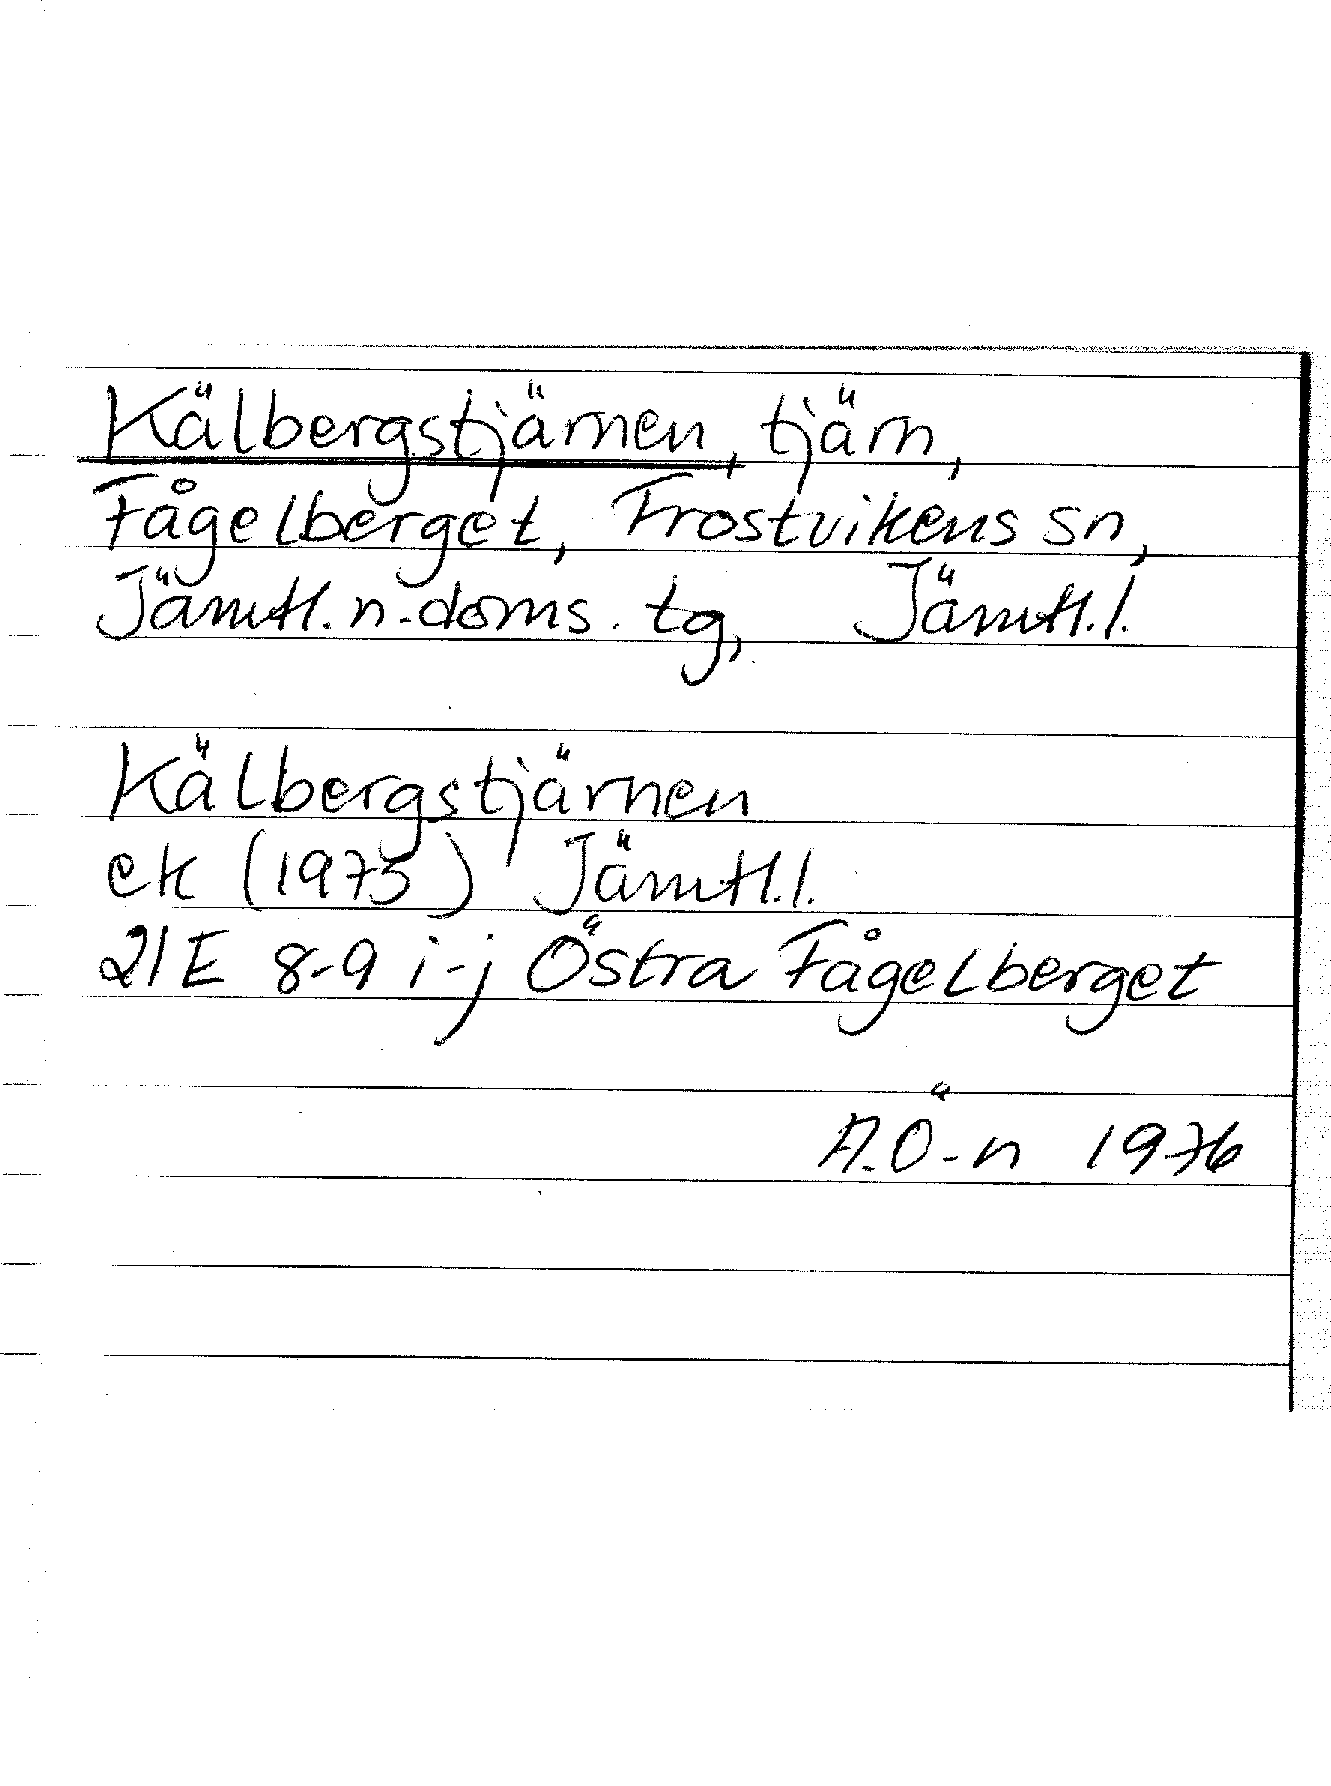 Kälbergstjärnen, tjärn,
Fågelberget, Frostvikens sn,
Jämtl. n. doms. tg, Jämtl. l.
Kälbergstjärnen
ek (1975) Jämtl. l.
21E 8-9 i-j Östra Fågelberget
A. Ö-n 1976